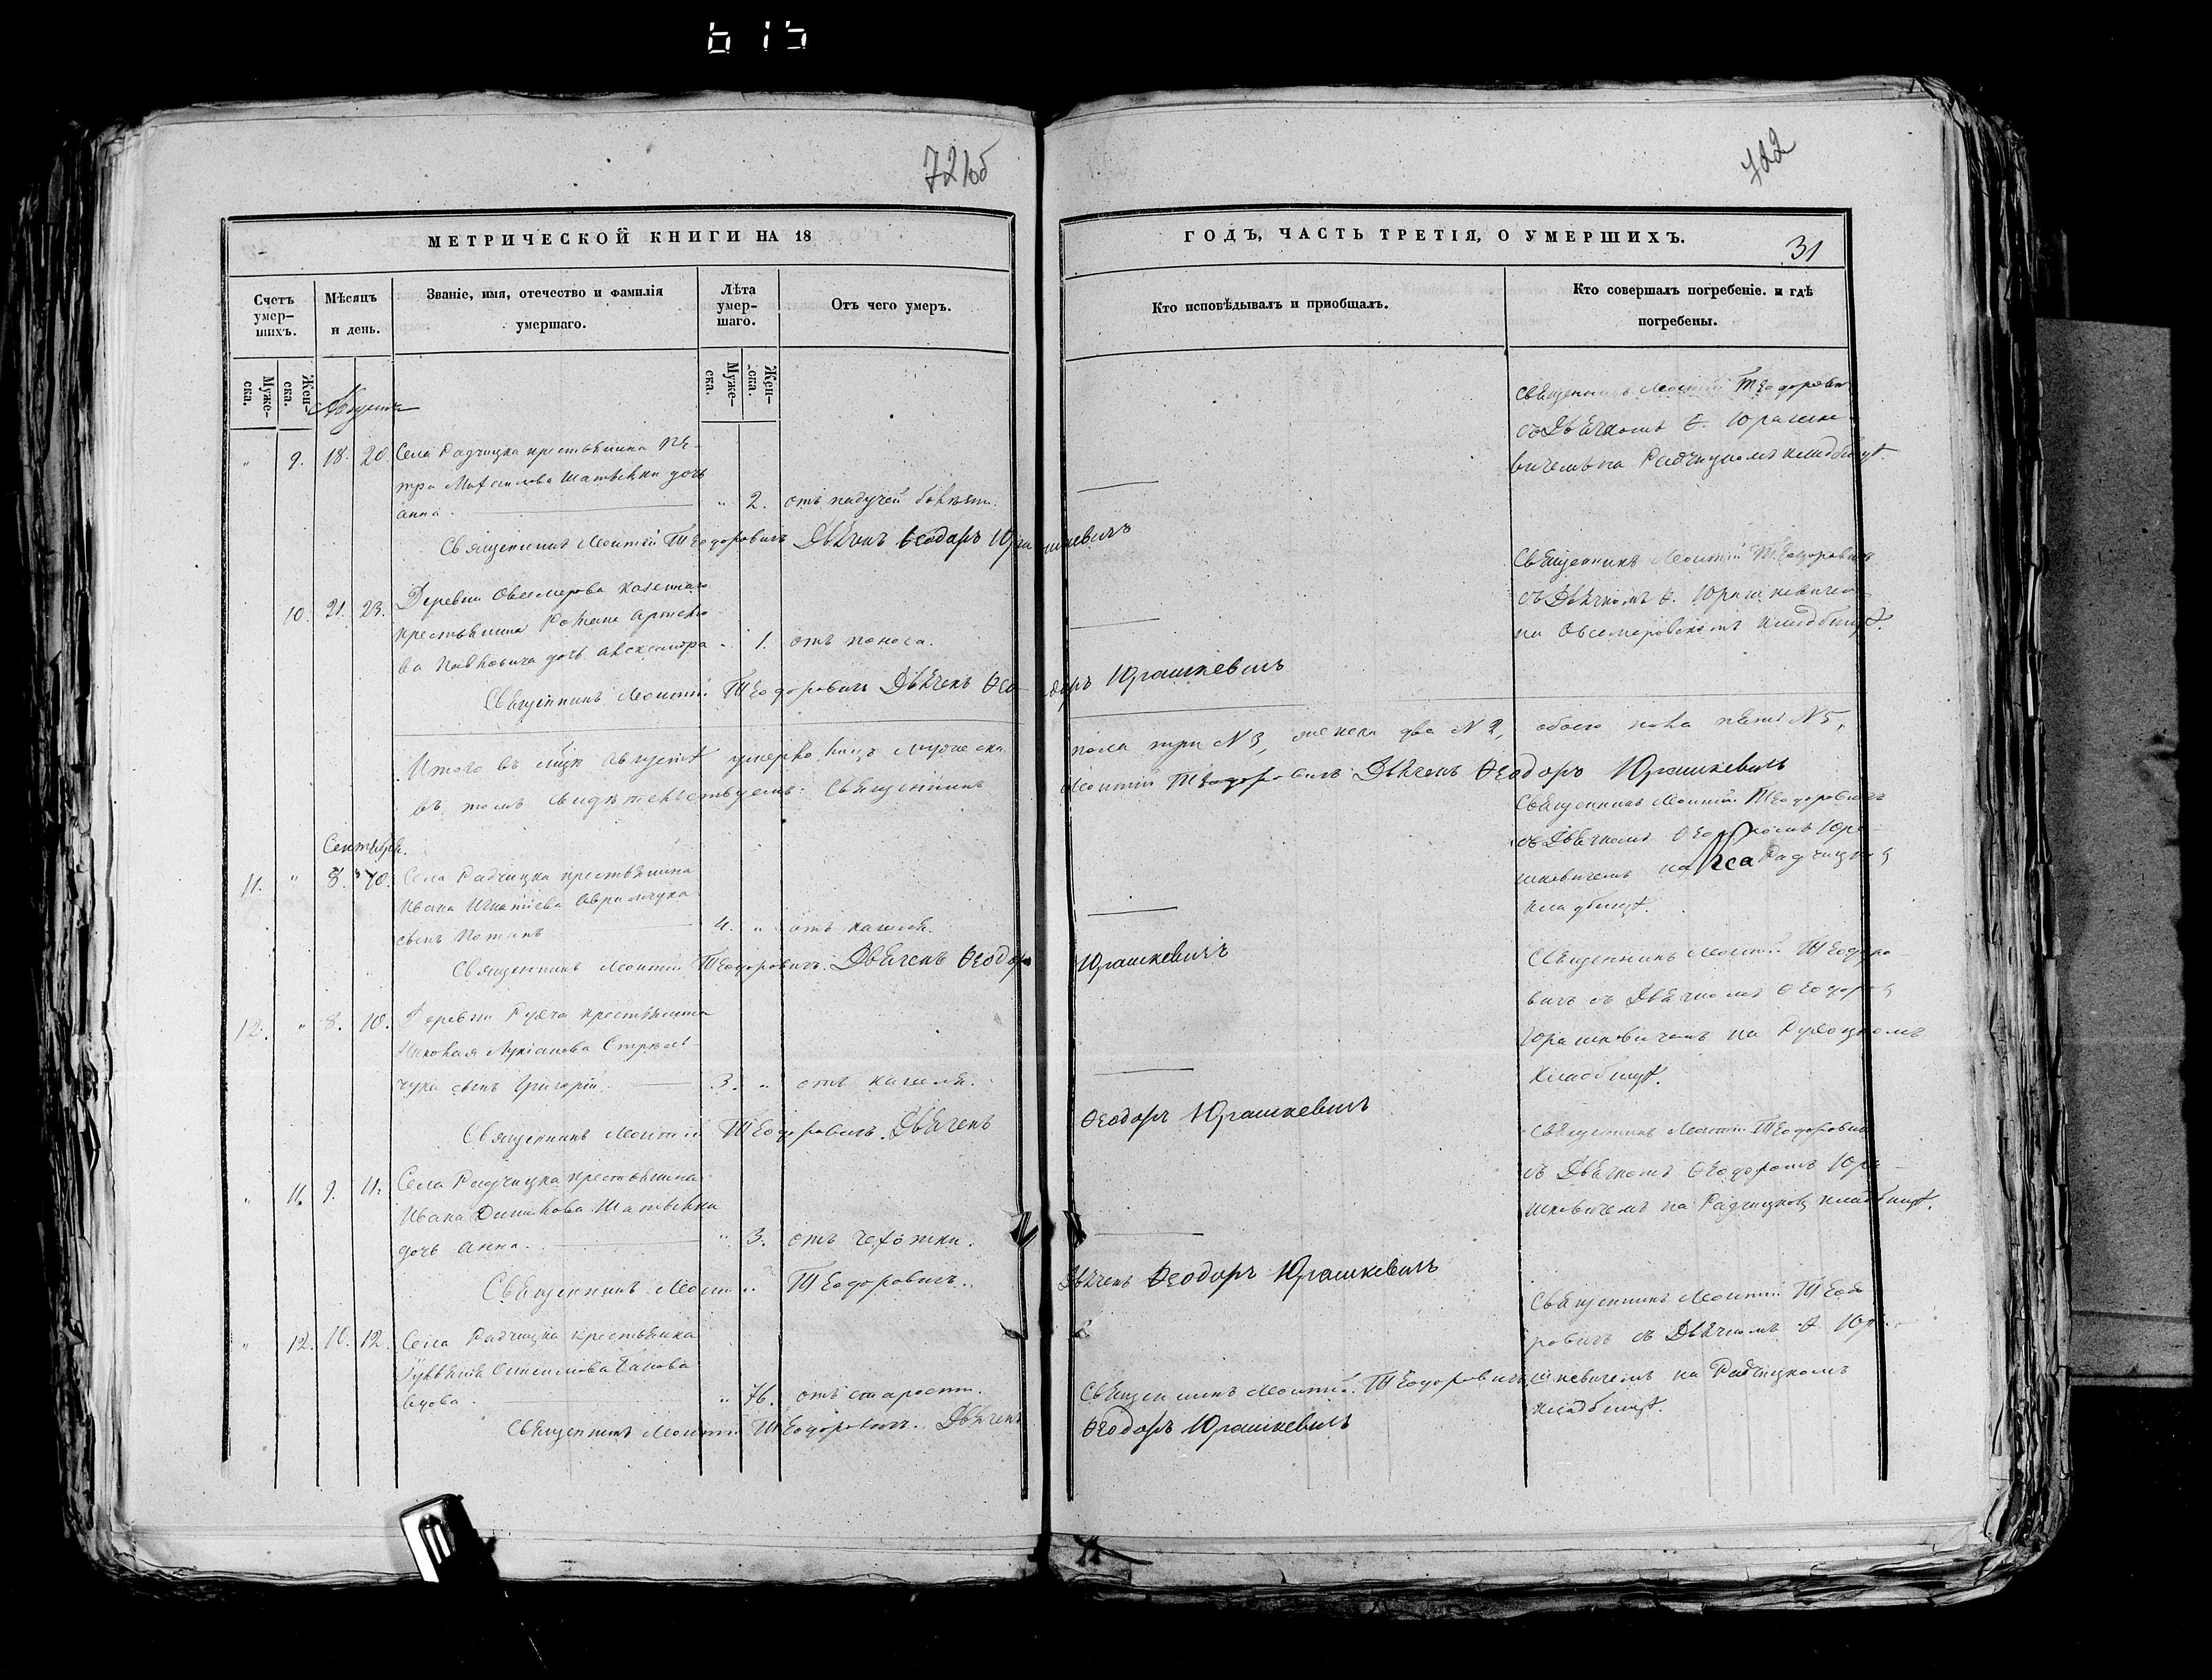 615
721об
722
МЕТРИЧЕСКОЙ КНИГИ НА 18
ГОДЪ, ЧАСТЬ ТРЕТІЯ, О УМЕРШИХЪ.
31
Счетъ умер-
шихъ.
Мѣсяцъ
и день.
Званіе, имя, отечество и фамилія
умершаго.
Лѣта
умер-
шаго.
Отъ чего умеръ.
Кто исповѣдывалъ и приобщалъ.
Кто совершалъ погребеніе. и гдѣ
погребены.
Муже-
ска.
Жен-
ска.
Муже-
ска.
Жен-
ска.
Августъ
" 9. 18. 20. Села Радчицка крестьянина Пе-
тра дочь
анна. " 2. отъ падучей болѣзни.
Священникъ Леонтій Теодоровичъ
съ Дьячкомъ Ѳ. Юрашке-
вичемъ на Радчицкомъ кладбищѣ.
Священникъ Леонтій Теодоровичъ Дьячекъ Ѳеодоръ Юрашкевичъ
10. 21. 23. Деревни казеннаго
крестьянина Романа
дочь Александра " 1. отъ поноса.
Священникъ Леонтій Теодоровичъ
съ Дьячкомъ Ѳ. Юрашкевичемъ
на кладбищѣ.
Священникъ Леонтій Теодоровичъ Дьячекъ Ѳеодоръ Юрашкевичъ
Итого въ Августѣ умерло лицъ мужеска пола три N 3, женска два N 2, обоего пола пять N 5,
въ томъ свидѣтельствуемъ: Священникъ Леонтій Теодоровичъ Дьячекъ Ѳеодоръ Юрашкевичъ
Сентябрь.
11. " 8. 10. Села Радчицка крестьянина
Ивана Игнатіева
сынъ 4. " отъ кашля.
Священникъ Леонтій Теодоровичъ
съ Дьячкомъ Юра-
шкевичемъ на
кладбищѣ.
Священникъ Леонтій Теодоровичъ. Дьячекъ Ѳеодоръ Юрашкевичъ
12. " 8. 10. Деревни крестьянина
Николая Лукіанова Стрѣль-
чука сынъ Григорій. 3. " отъ кашля.
Священникъ Леонтій Теодоро-
вичъ съ Дьячкомъ Ѳеодоромъ
Юрашкевичемъ на
кладбищѣ.
Священникъ Леонтій Теодоровичъ. Дьячекъ Ѳеодоръ Юрашкевичъ
" 11. 9. 11. Села Радчицка крестьянина
Ивана
дочь анна. " 3. отъ чехотки.
Священникъ Леонтій Теодоровичъ
съ Дьячкомъ Ѳеодоромъ Юра-
шкевичемъ на кладбищѣ.
Священникъ Леонтій Теодоровичъ. Дьячекъ Ѳеодоръ Юрашкевичъ
" 12. 10. 12. Села Радчицка крестьянка
вдова. " 76. отъ старости.
Священникъ Леонтій Теодоровичъ
Священникъ Леонтій Теодо-
ровичъ съ Дьячкомъ Ѳ. Юра-
шкевичемъ на Радчицкомъ
кладбищѣ.
Священникъ Леонтій Теодоровичъ. Дьячекъ Ѳеодоръ Юрашкевичъ